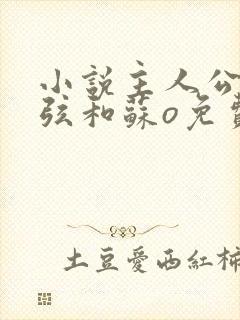 小說主人公
弦和蘇o免費
土豆愛西紅柿